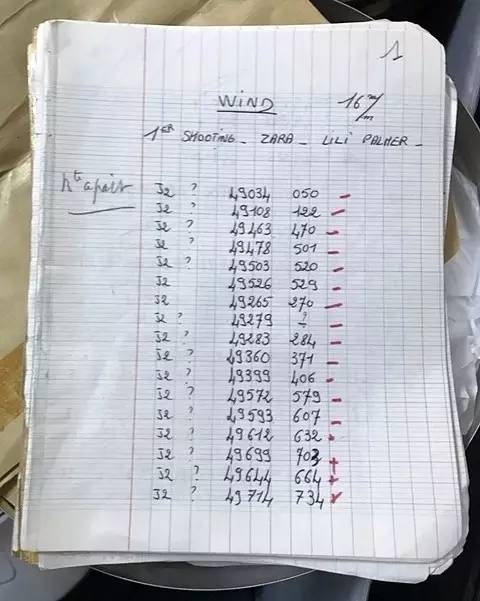 1
WIND 16 m/m
1ER SHOOTING - ZARA - LILI PALMER -
J2 ? 49034 050 -
J2 ? 49108 122 -
J2 ? 49463 470 -
J2 ? 49478 501 -
J2 ? 49503 520 -
J2 49526 529 -
J2 49265 270 -
J2 ? 49279 ? -
J2 ? 49283 284 -
J2 ? 49360 371 -
J2 ? 49399 406 -
J2 ? 49572 579 -
J2 ? 49593 607 -
J2 ? 49612 632 -
J2 ? 49699 703 +
J2 ? 49644 664 +
J2 ? 49714 734 ✓